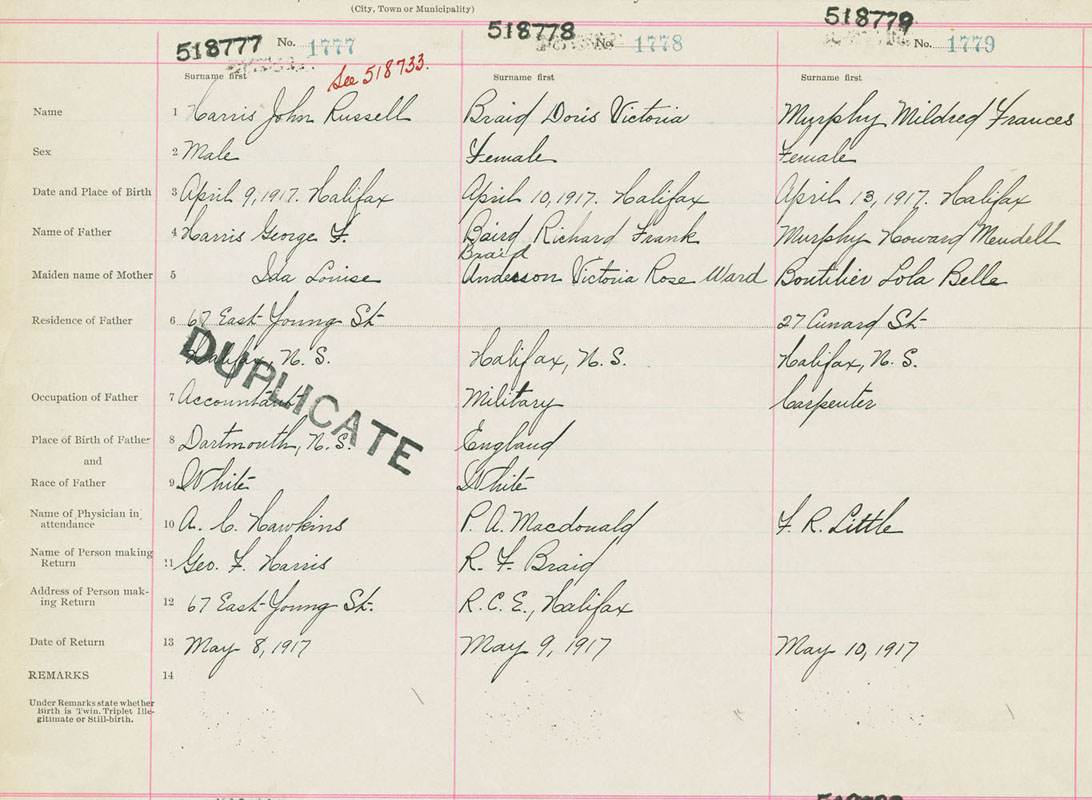 (City, Town or Municipality)
518777 No. 1777
518778 No. 1778
518779 No. 1779
See 518733.
Surname first Surname first Surname first
Name 1 Harris John Russell Braid Doris Victoria Murphy Mildred Frances
Sex 2 Male Female Female
Date and Place of Birth 3 April 9, 1917. Halifax April 10, 1917. Halifax April 13, 1917. Halifax
Name of Father 4 Harris George F. Baird Richard Frank Murphy Howard Mendell
Braid
Maiden name of Mother 5 Ida Louise Anderson Victoria Rose Ward Boutilier Lola Belle
Residence of Father 6 67 East Young St. 27 Cunard St
Halifax, N. S. Halifax, N. S. Halifax, N. S.
DUPLICATE
Occupation of Father 7 Accountant Military Carpenter
Place of Birth of Father 8 Dartmouth, N. S. England
and
Race of Father 9 White White
Name of Physician in attendance 10 A. C. Hawkins P. A. Macdonald F. R. Little
Name of Person making Return 11 Geo. F. Harris R. F. Braid
Address of Person mak-
ing Return 12 67 East Young St. R. C. E., Halifax
Date of Return 13 May 8, 1917 May 9, 1917 May 10, 1917
REMARKS 14
Under Remarks state whether
Birth is Twin. Triplet Ille-
gitimate or Still-birth.